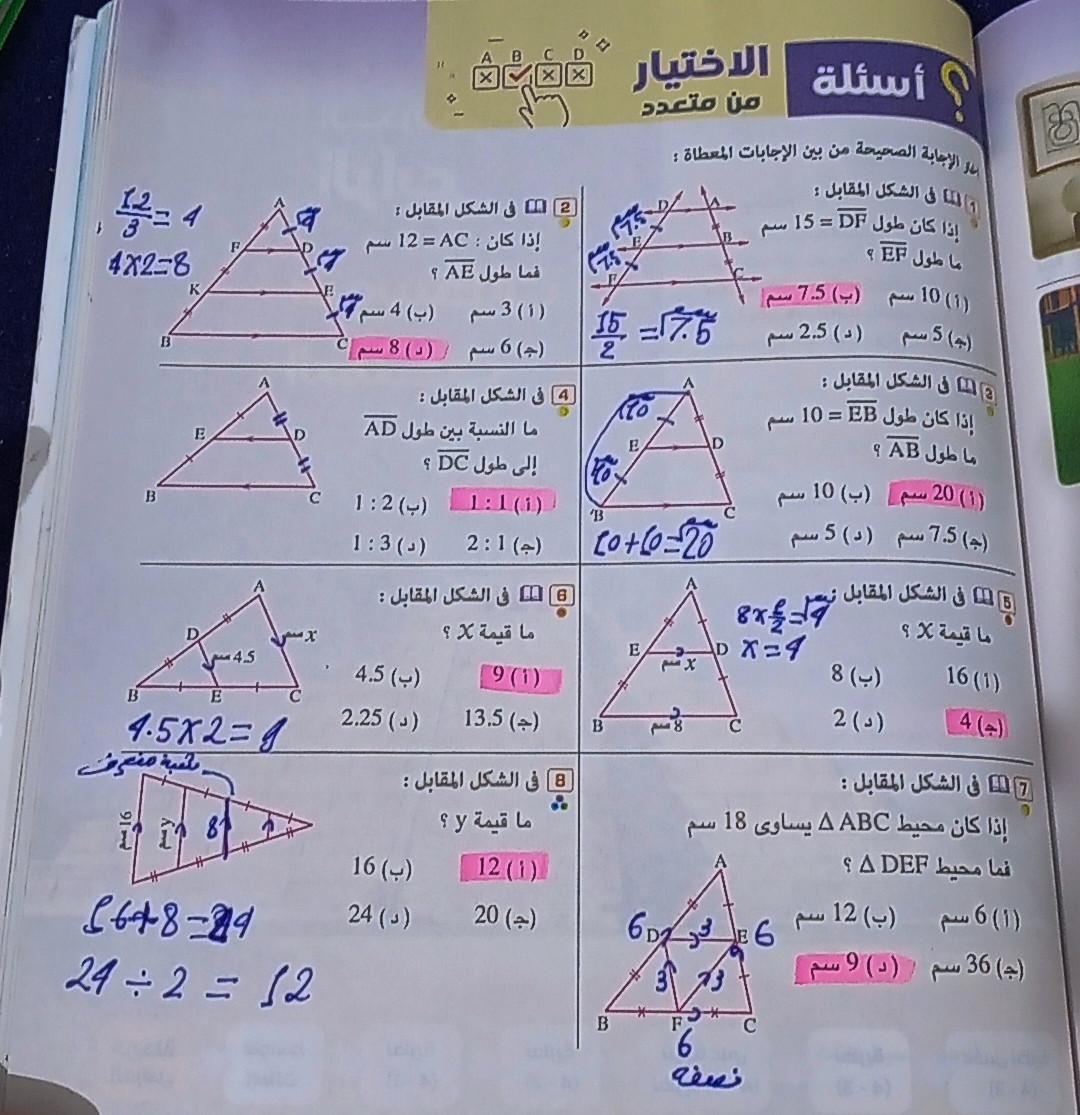 أسئلة
الاختيار
من متعدد
A B C D
الإجابة الصحيحة من بين الإجابات المعطاة :
1 فى الشكل المقابل :
إذا كان طول DF = 15 سم
ما طول EF ؟
(أ) 10 سم (ب) 7.5 سم
(ج) 5 سم (د) 2.5 سم
D A
E B
F C
7.5
7.5
15/2 = 7.5
2 فى الشكل المقابل :
إذا كان : AC = 12 سم
فما طول AE ؟
(أ) 3 سم (ب) 4 سم
(ج) 6 سم (د) 8 سم
A
F D
K E
B C
12/3 = 4
4×2=8
3 فى الشكل المقابل :
إذا كان طول EB = 10 سم
ما طول AB ؟
(أ) 20 سم (ب) 10 سم
(ج) 7.5 سم (د) 5 سم
A
10
E D
10
B C
10+10=20
4 فى الشكل المقابل :
ما النسبة بين طول AD
إلى طول DC ؟
(أ) 1 : 1 (ب) 2 : 1
(ج) 1 : 2 (د) 3 : 1
A
E D
B C
5 فى الشكل المقابل :
ما قيمة X ؟
(أ) 16 (ب) 8
(ج) 4 (د) 2
A
E D
X سم
B C
8 سم
X=4
6 فى الشكل المقابل :
ما قيمة X ؟
(أ) 9 (ب) 4.5
(ج) 13.5 (د) 2.25
A
D
X سم
4.5 سم
B E C
4.5×2=9
7 فى الشكل المقابل :
إذا كان محيط Δ ABC يساوى 18 سم
فما محيط Δ DEF ؟
(أ) 6 سم (ب) 12 سم
(ج) 36 سم (د) 9 سم
A
6 D 3 E 6
3 3
B F C
6
نصفه
8 فى الشكل المقابل :
ما قيمة y ؟
(أ) 12 (ب) 16
(ج) 20 (د) 24
شبه منحرف
16 سم
y سم
8
24 ÷ 2 = 12